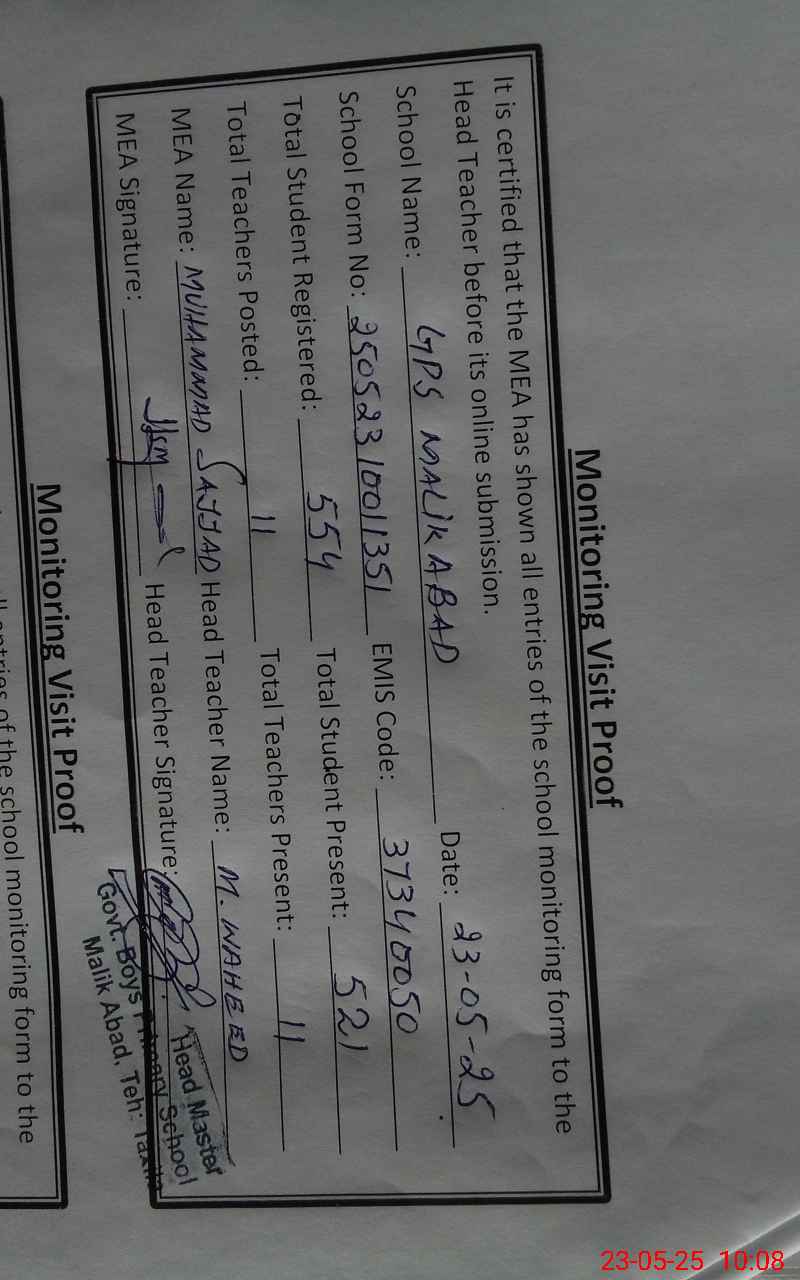 Monitoring Visit Proof
It is certified that the MEA has shown all entries of the school monitoring form to the
Head Teacher before its online submission.
School Name: GPS MALIKABAD Date: 23-05-25
School Form No: 25052310011351 EMIS Code: 37340050
Total Student Registered: 554 Total Student Present: 521
Total Teachers Posted: 11 Total Teachers Present: 11
MEA Name: MUHAMMAD SAJJAD Head Teacher Name: M. WAHEED
MEA Signature: Head Teacher Signature:
Head Master
Govt. Boys Primary School
Malik Abad, Teh: Taxila
Monitoring Visit Proof
entries of the school monitoring form to the
23-05-25 10:08